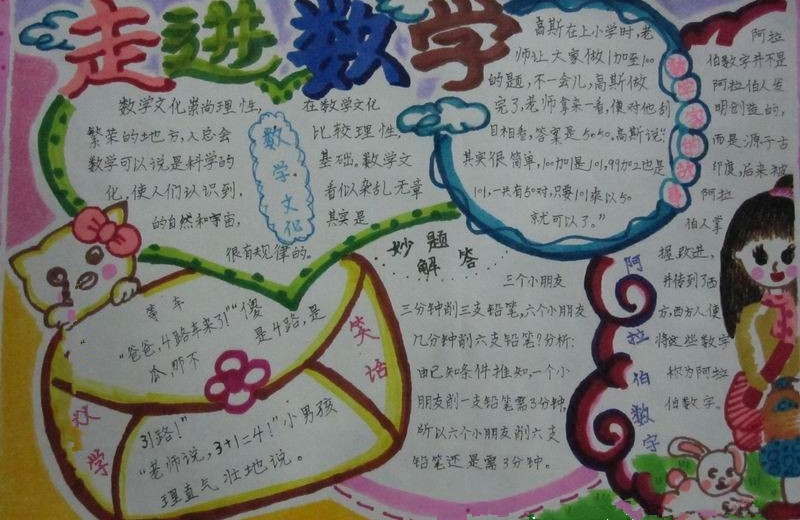 走进数学
数学文化崇尚理性,
在数学文化
繁荣的地方,人总会
比较理性,
数学可以说是科学的
基础。数学文
化,使人们认识到,
看似杂乱无章
的自然和宇宙,
其实是
很有规律的。
数学·文化
高斯在上小学时,老
师让大家做1加至100
的题,不一会儿,高斯做
完了,老师拿来一看,便对他刮
目相看,答案是5050,高斯说:“
其实很简单,100加1是101,99加2也是
101,一共有50对,只要101乘以50
就可以了。”
数学家的故事
阿拉
伯数字并不是
阿拉伯人发
明创造的,
而是源于古
印度,后来被
阿拉
伯人掌
握、改进,
并传到了西
方,西方人便
将这些数字
称为阿拉
伯数字。
阿拉伯数字
妙题
解答
三个小朋友
三分钟削三支铅笔,六个小朋友
几分钟削六支铅笔?分析:
由已知条件推知,一个小
朋友削一支铅笔需3分钟,
所以六个小朋友削六支
铅笔还是需3分钟。
等车
“爸爸,4路车来了!”“傻
瓜,那不
是4路,是
31路!”
“老师说,3+1=4!”小男孩
理直气壮地说。
数学
笑话